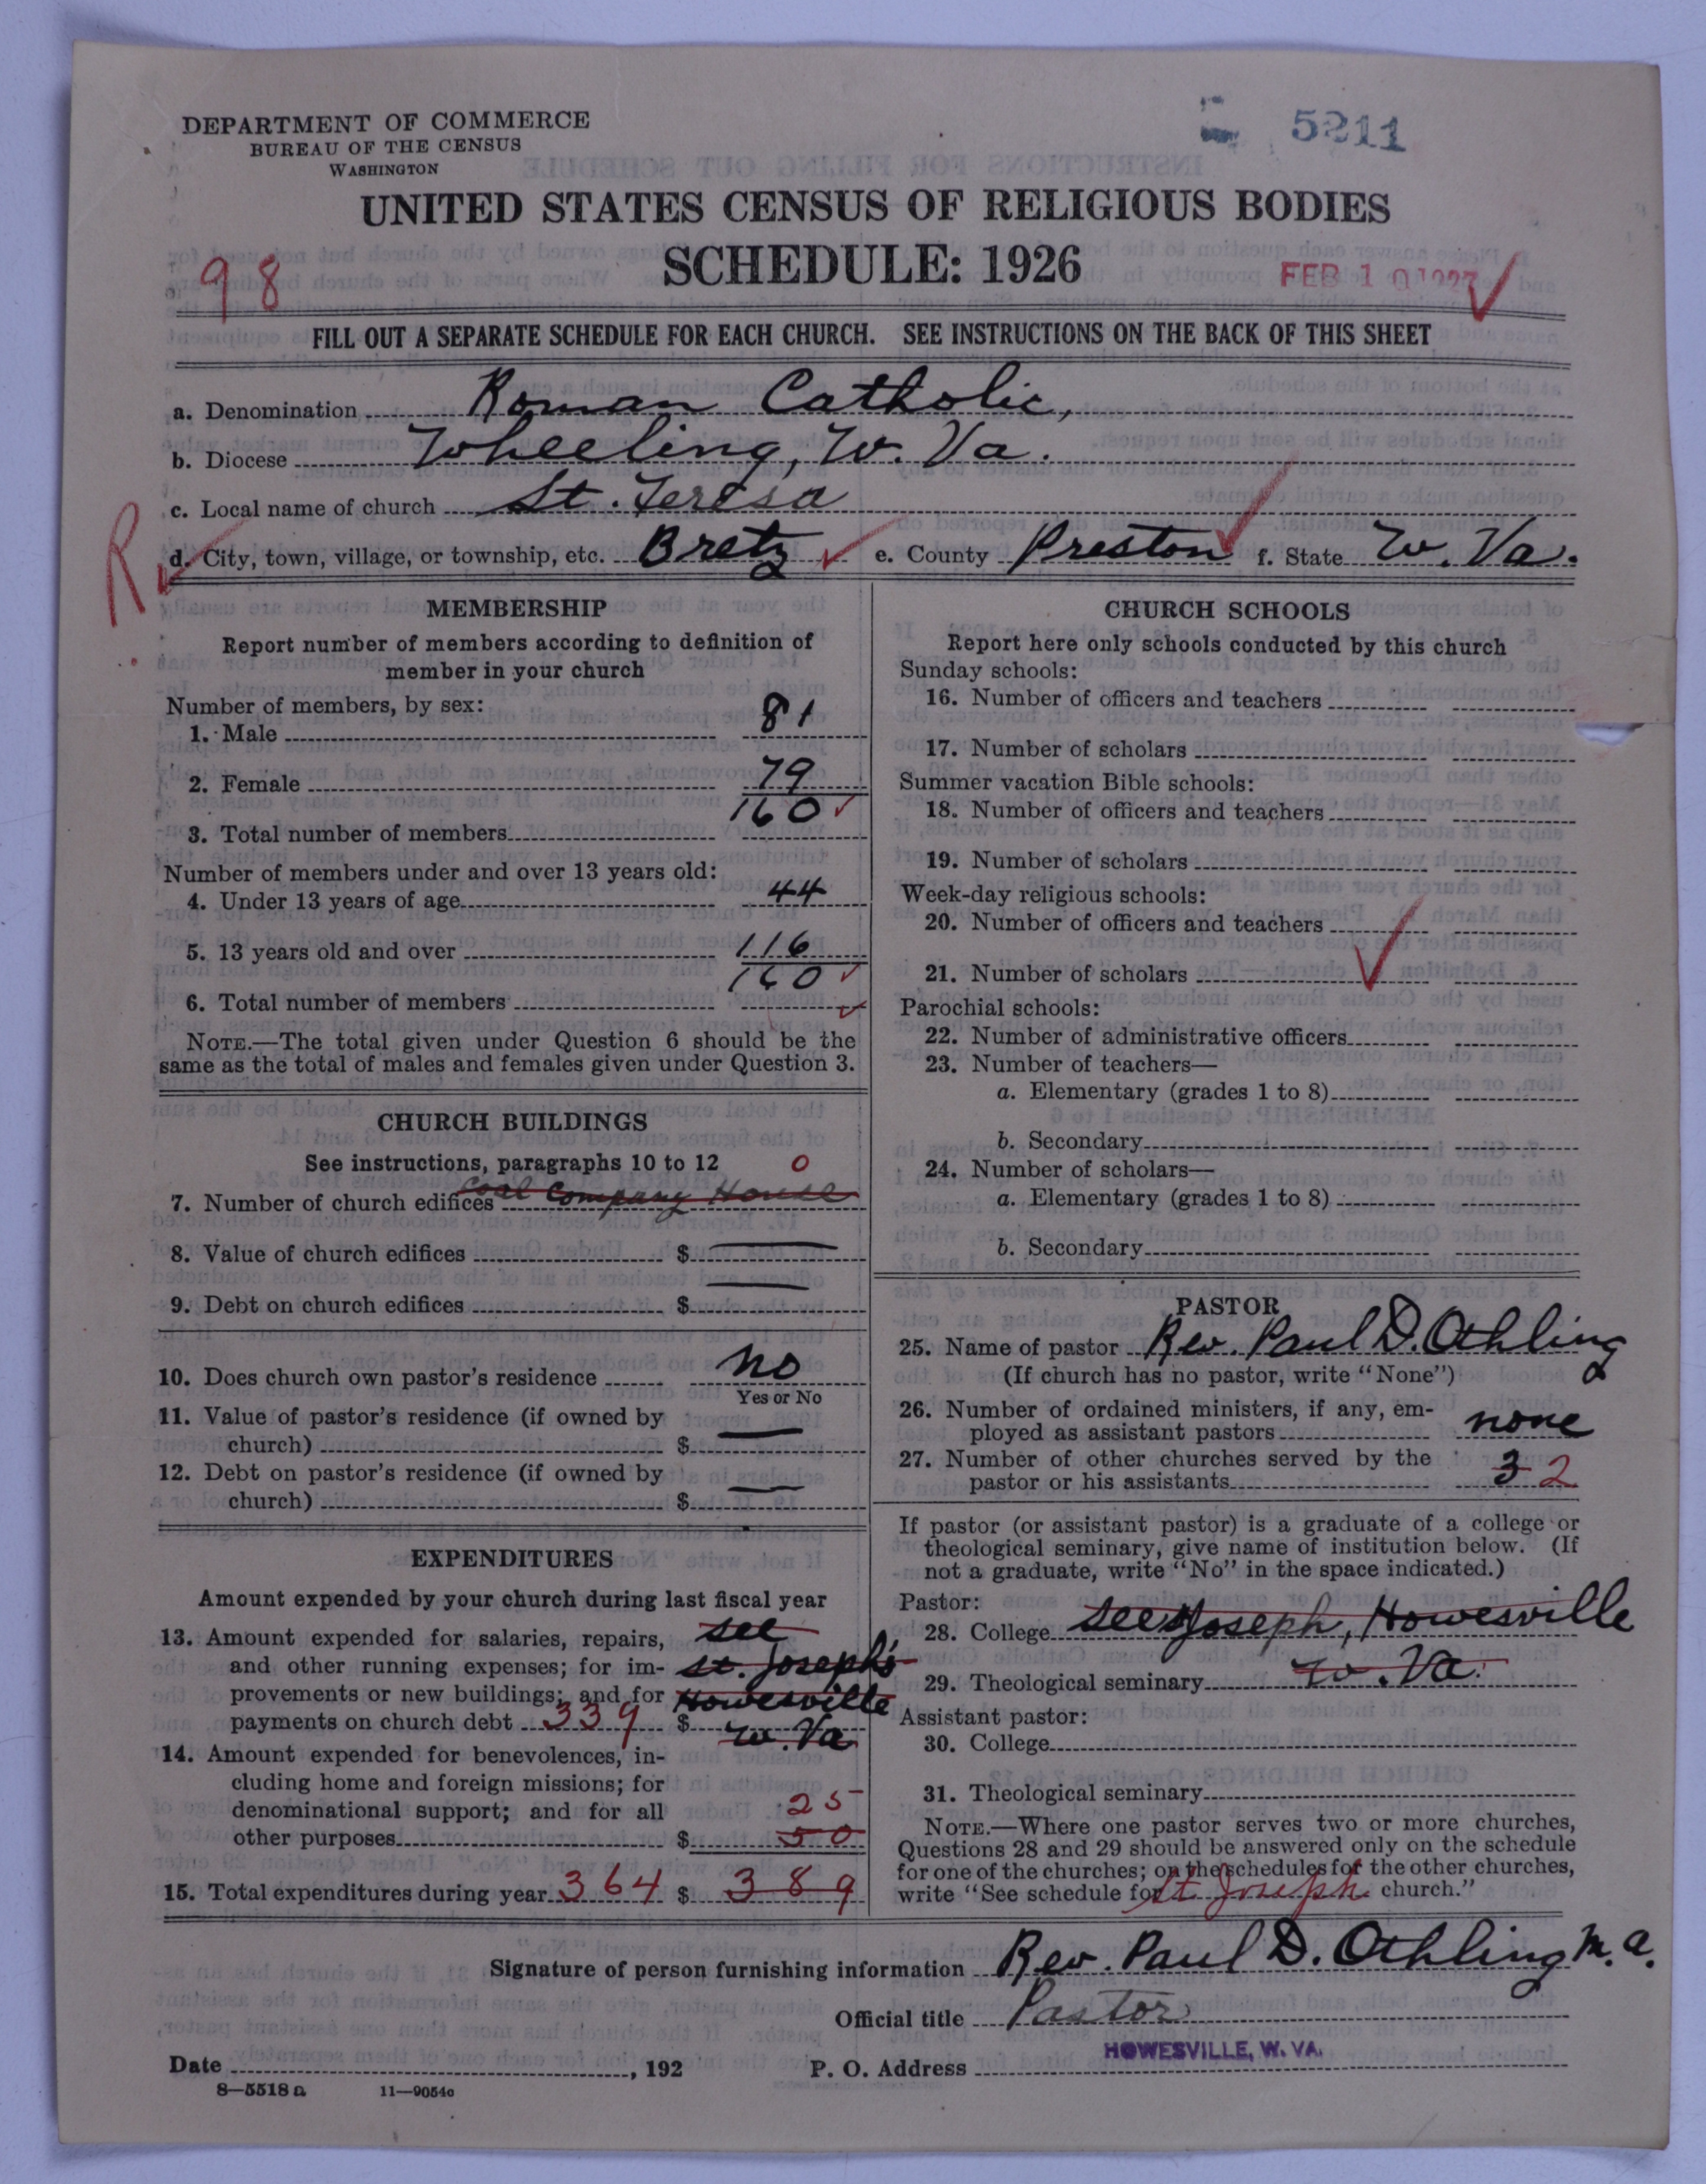 DEPARTMENT OF COMMERCE
BUREAU OF THE CENSUS
WASHINGTON
5211
UNITED STATES CENSUS OF RELIGIOUS BODIES
SCHEDULE: 1926
98
FEB 10 1927
FILL OUT A SEPARATE SCHEDULE FOR EACH CHURCH. SEE INSTRUCTIONS ON THE BACK OF THIS SHEET
a. Denomination Roman Catholic,
b. Diocese Wheeling, W. Va.
c. Local name of church St. Teresa
R
d. City, town, village, or township, etc. Bretz e. County Preston f. State W. Va.
MEMBERSHIP
Report number of members according to definition of
member in your church
Number of members, by sex:
1. Male 81
2. Female 79
3. Total number of members 160
Number of members under and over 13 years old:
4. Under 13 years of age 44
5. 13 years old and over 116
6. Total number of members 160
NOTE.—The total given under Question 6 should be the
same as the total of males and females given under Question 3.
CHURCH BUILDINGS
See instructions, paragraphs 10 to 12 0
7. Number of church edifices Coal Company House
8. Value of church edifices $
9. Debt on church edifices $
10. Does church own pastor's residence no
Yes or No
11. Value of pastor's residence (if owned by
church) $
12. Debt on pastor's residence (if owned by
church) $
EXPENDITURES
Amount expended by your church during last fiscal year
13. Amount expended for salaries, repairs, see
and other running expenses; for im- St. Joseph's
provements or new buildings; and for Howesville
payments on church debt 339 $ W. Va
14. Amount expended for benevolences, in-
cluding home and foreign missions; for
denominational support; and for all 25
other purposes $ 50
15. Total expenditures during year 364 $ 389
CHURCH SCHOOLS
Report here only schools conducted by this church
Sunday schools:
16. Number of officers and teachers
17. Number of scholars
Summer vacation Bible schools:
18. Number of officers and teachers
19. Number of scholars
Week-day religious schools:
20. Number of officers and teachers
21. Number of scholars
Parochial schools:
22. Number of administrative officers
23. Number of teachers—
a. Elementary (grades 1 to 8)
b. Secondary
24. Number of scholars—
a. Elementary (grades 1 to 8)
b. Secondary
PASTOR
25. Name of pastor Rev. Paul D. Othling
(If church has no pastor, write "None")
26. Number of ordained ministers, if any, em-
ployed as assistant pastors none
27. Number of other churches served by the
pastor or his assistants 3 2
If pastor (or assistant pastor) is a graduate of a college or
theological seminary, give name of institution below. (If
not a graduate, write "No" in the space indicated.)
Pastor:
28. College see St Joseph, Howesville
29. Theological seminary W. Va.
Assistant pastor:
30. College
31. Theological seminary
NOTE.—Where one pastor serves two or more churches,
Questions 28 and 29 should be answered only on the schedule
for one of the churches; on the schedules for the other churches,
write "See schedule for St Joseph church."
Signature of person furnishing information Rev. Paul D. Othling M. A.
Official title Pastor
Date , 192 P. O. Address HOWESVILLE, W. VA.
8—5518a 11—9054c